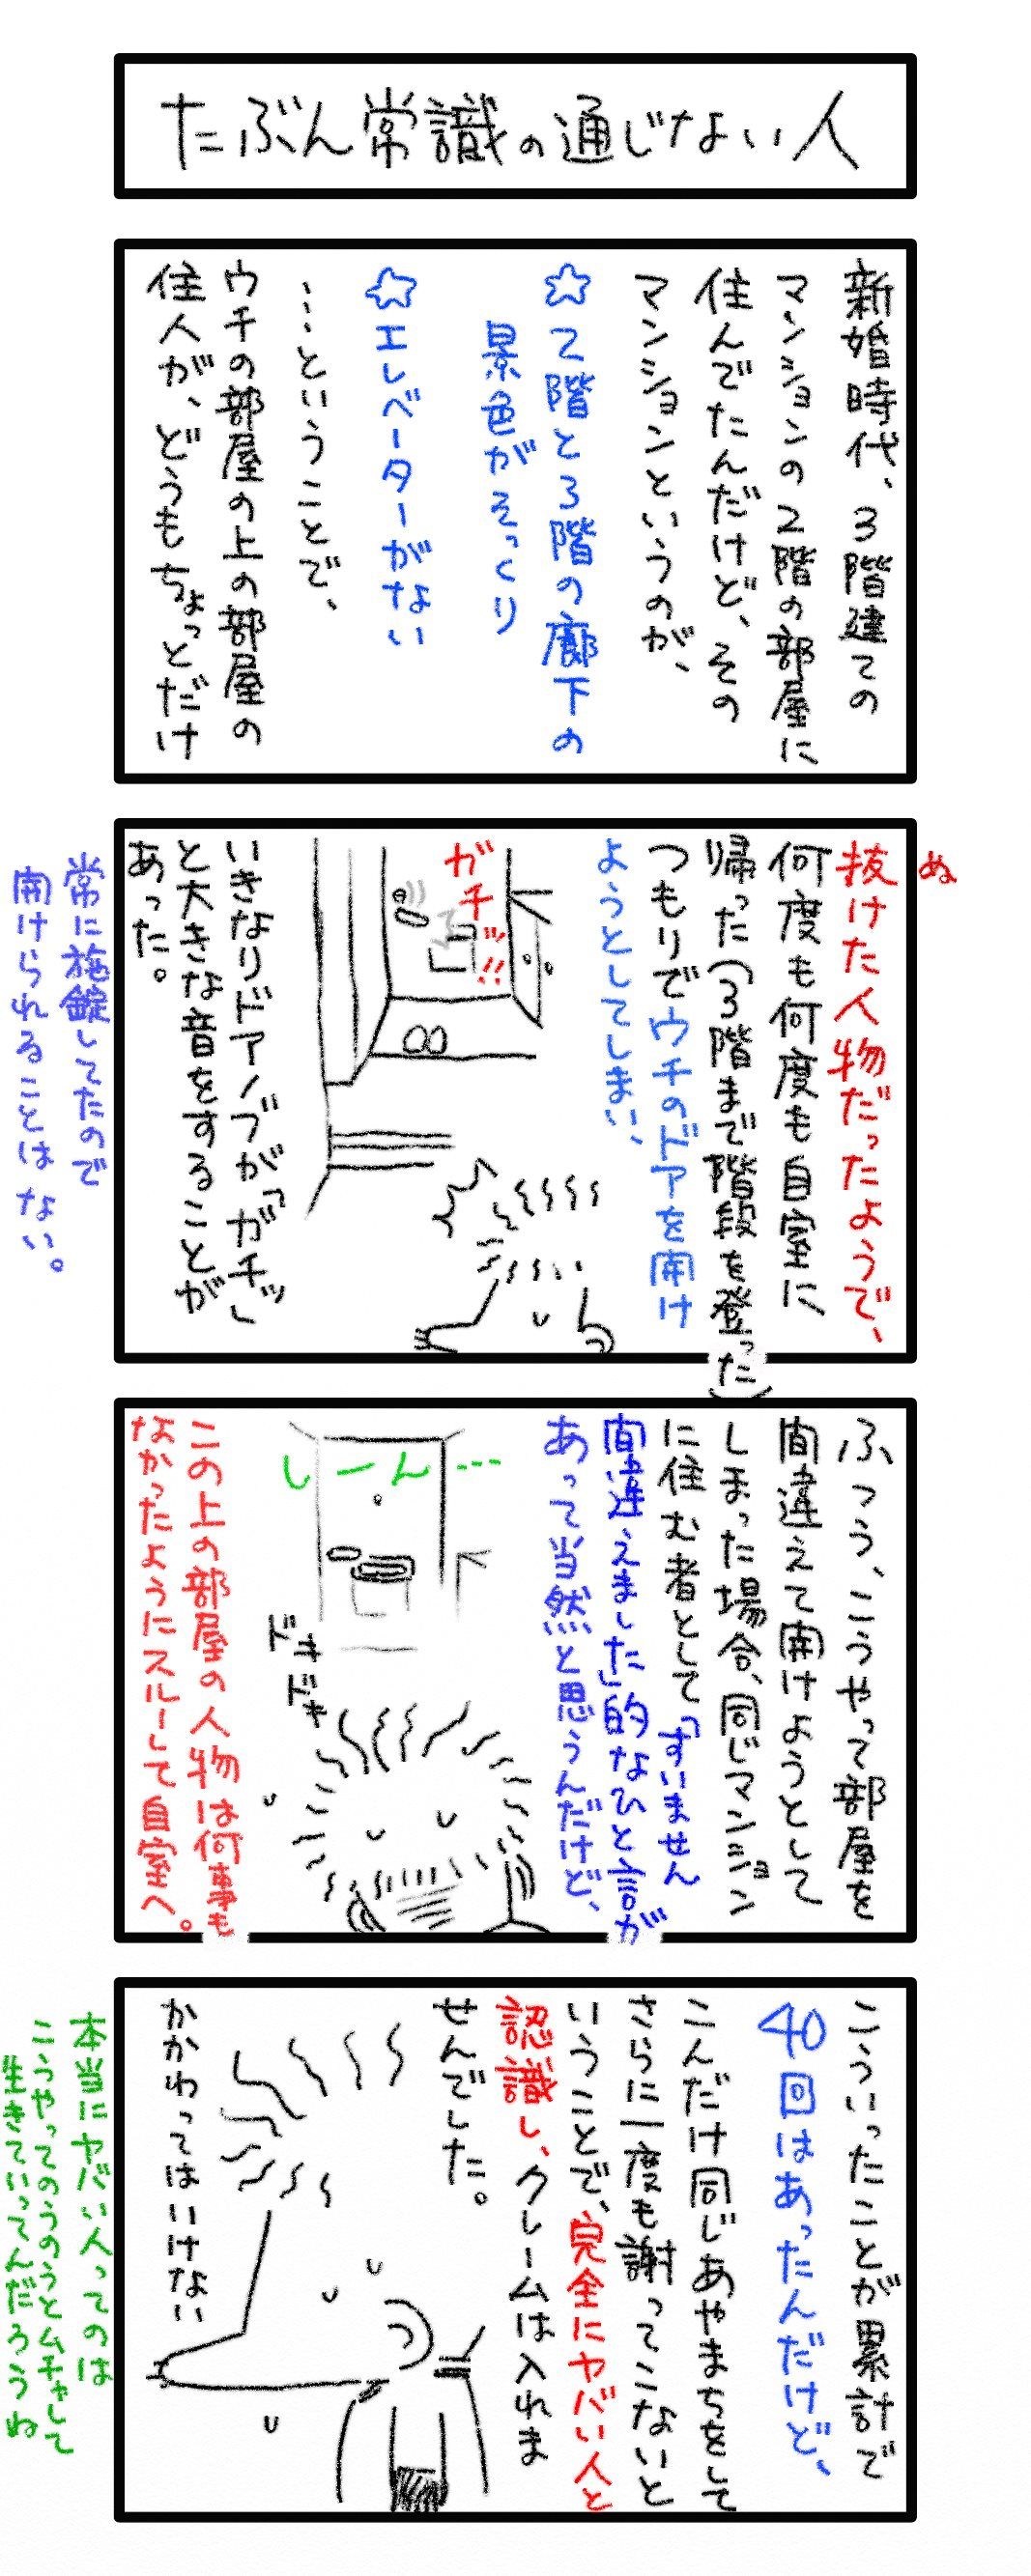 たぶん常識の通じない人
新婚時代、3階建ての
マンションの2階の部屋に
住んでたんだけど、その
マンションというのが、
☆2階と3階の廊下の
景色がそっくり
☆エレベーターがない
…ということで、
ウチの部屋の上の部屋の
住人が、どうもちょっとだけ
ぬ
抜けた人物だったようで、
何度も何度も自室に
帰った(3階まで階段を登った)
つもりでウチのドアを開け
ようとしてしまい、
ガチッ!!
いきなりドアノブが「ガチッ」
と大きな音をすることが
あった。
常に施錠してたので
開けられることはない。
ふつう、こうやって部屋を
間違えて開けようとして
しまった場合、同じマンション
に住む者として「すいません
間違えました」的なひと言が
あって当然と思うんだけど、
しーん…
ドキ
ドキ
この上の部屋の人物は何事も
なかったようにスルーして自室へ。
こういったことが累計で
40回はあったんだけど、
こんだけ同じあやまちをして
さらに一度も謝ってこないと
いうことで、完全にヤバい人と
認識し、クレームは入れま
せんでした。
かかわってはいけない
本当にヤバい人ってのは
こうやってのうのうとムチャして
生きていってんだろうね